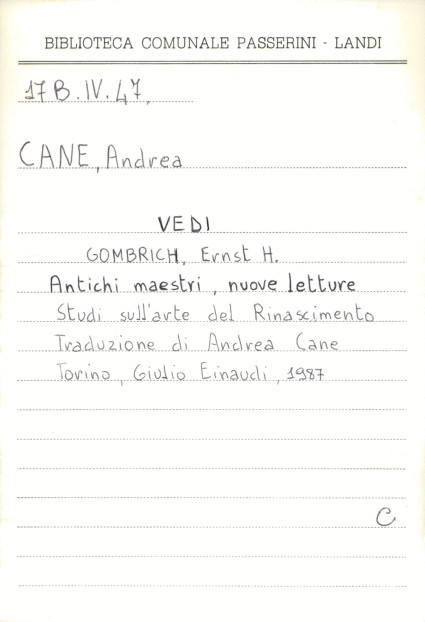 BIBLIOTECA COMUNALE PASSERINI - LANDI
17 B.IV.47,
CANE, Andrea
VEDI
GOMBRICH, Ernst H.
Antichi maestri, nuove letture
Studi sull'arte del Rinascimento
Traduzione di Andrea Cane
Torino, Giulio Einaudi, 1987
C